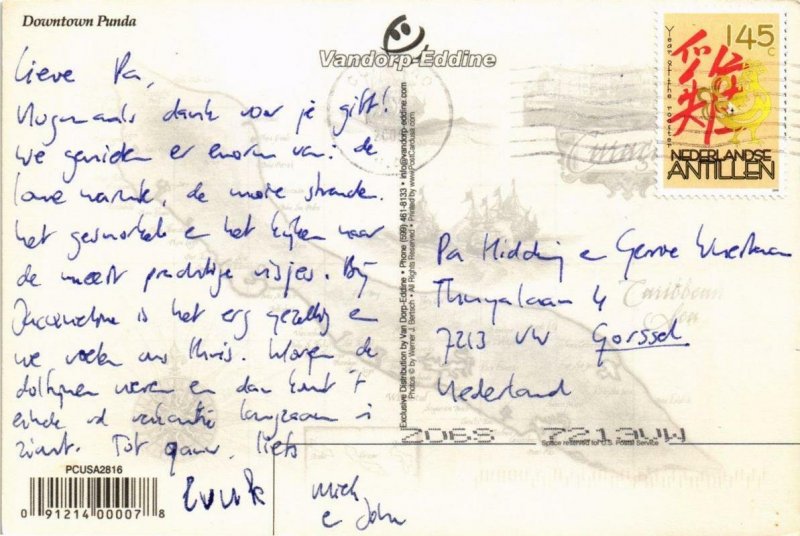 Downtown Punda
Vandorp-Eddine
Lieve Pa,
Nogmaals dank voor je gift!
We genieten er enorm van: de
warmte, de mooie stranden.
het gesnorkel en het kijken naar
de meest prachtige visjes. Bij
Jacqueline is het erg gezellig en
we voelen ons thuis. Morgen de
dolfijnen en dan komt 't
einde vd vakantie langzaam in
zicht. Tot gauw, liefs
PCUSA2816
0 91214 00007 8
Mich
e John
Exclusive Distribution by Van Dorp-Eddine • Phone (599) 461-8133 • info@vandorp-eddine.com
Photos © by Werner J. Bertsch • All Rights Reserved • Printed by www.PostCardusa.com
145
c
Year of the rooster
NEDERLANDSE
ANTILLEN
Curaçao
Caribbean
Sea
Pa Hidding e Gerrie
4
7213 VW Gorssel
Nederland
7213VW
Space reserved for U.S. Postal Service